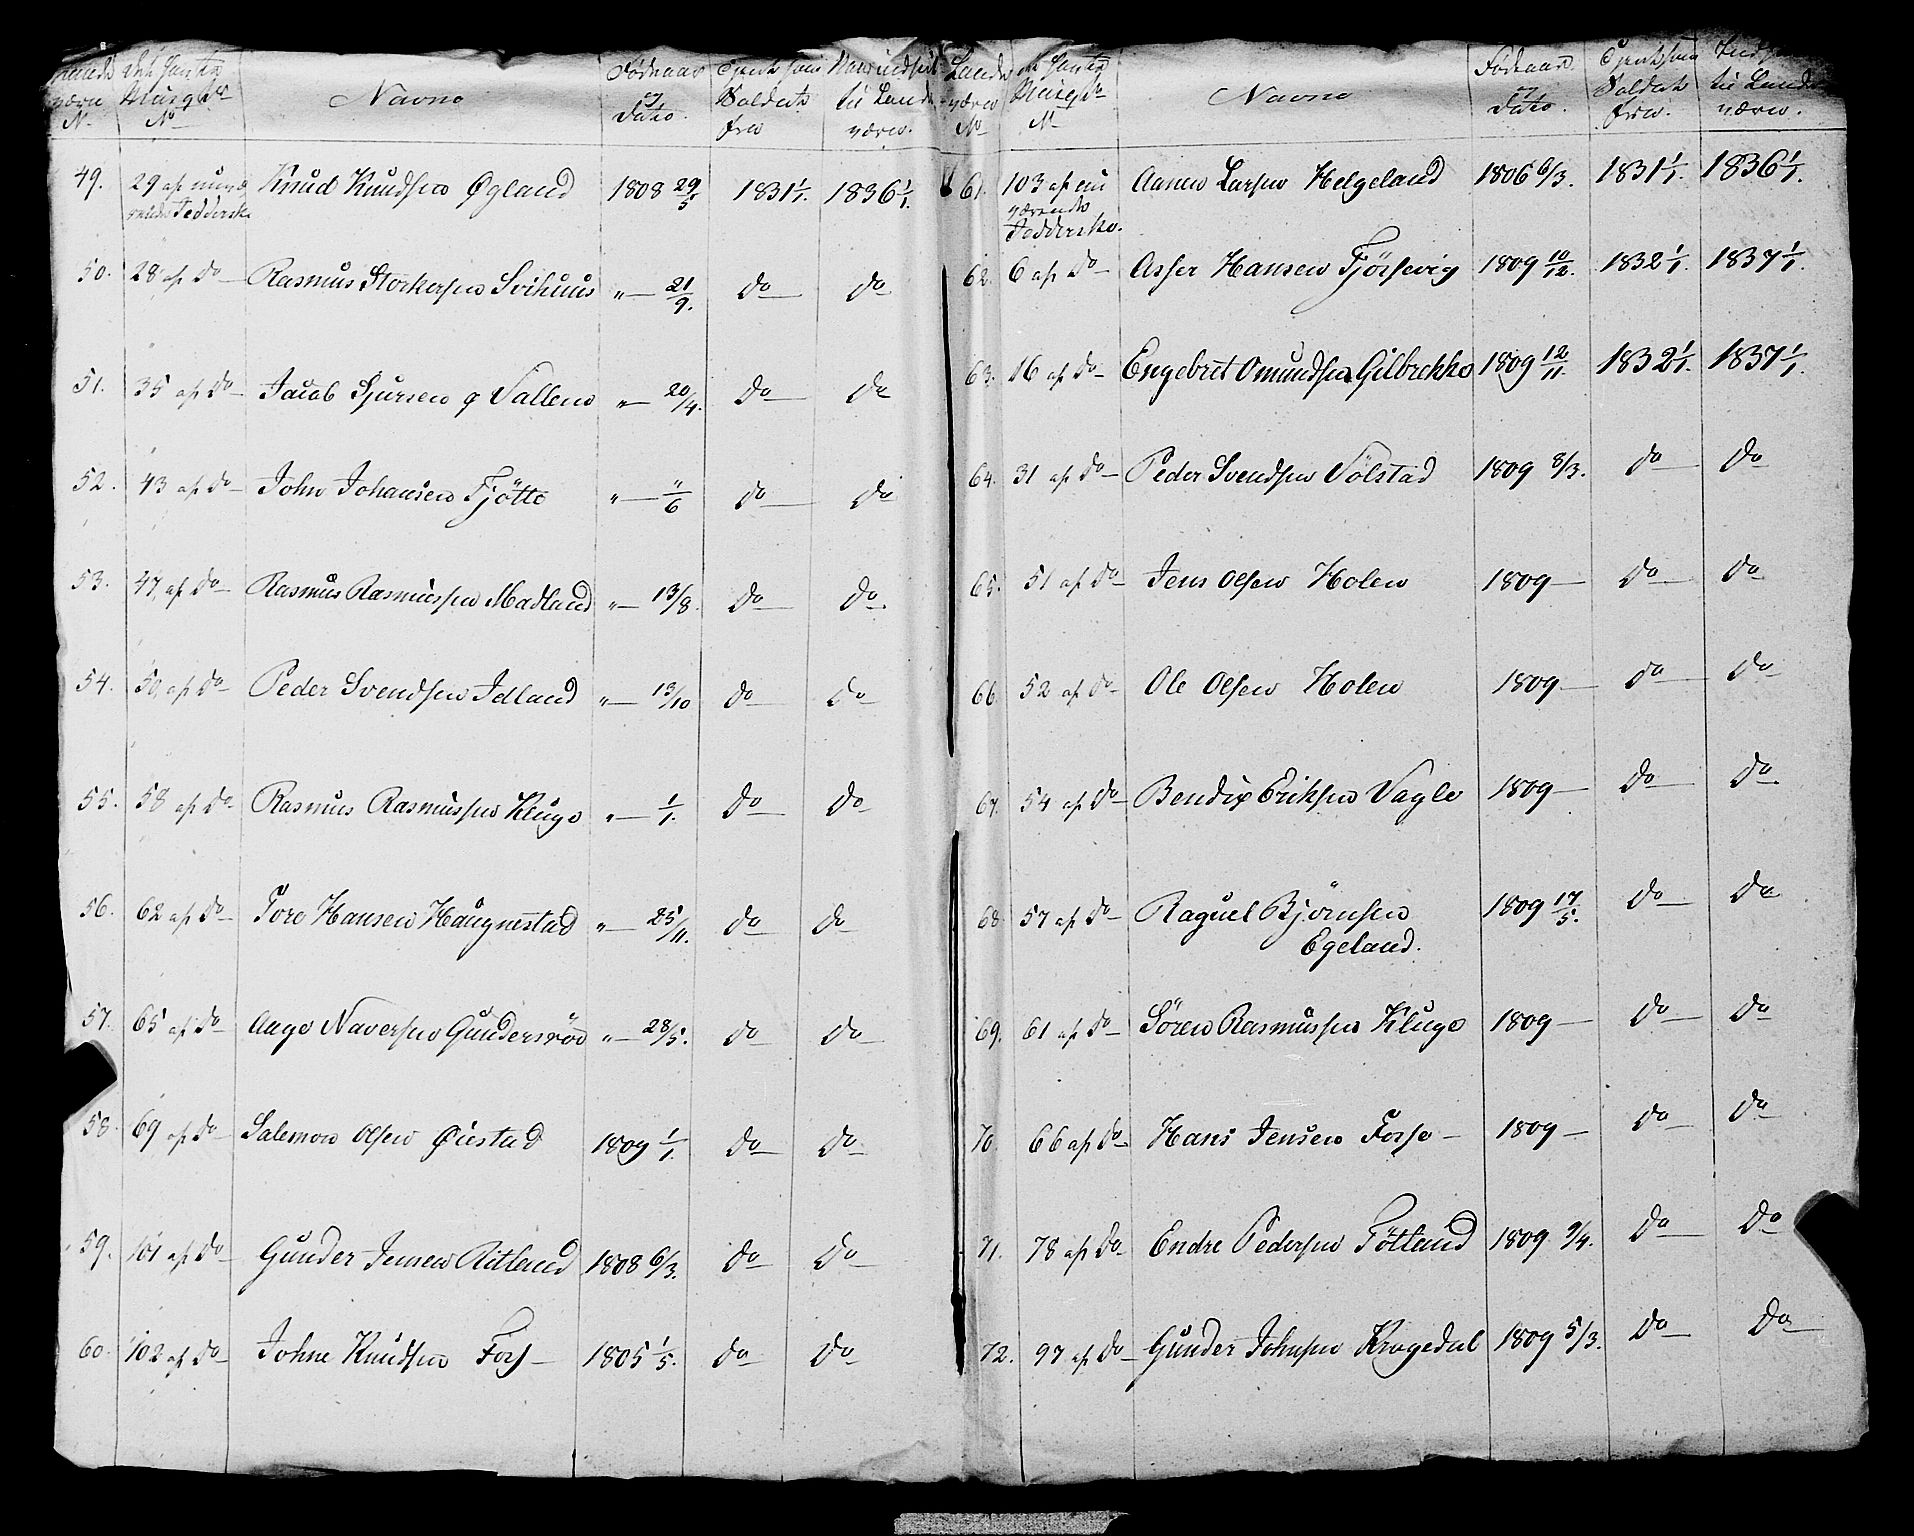 Navne
Fødeaar
og
dato.
Tjent som
Soldat
fra
til Land-
værn.
49. 29 af nuvæ- Knud Knudsen Øgland 1808 29/5 1831 1/1. 1836 1/1.
50. 28 af do Rasmus Storkersen Svihuus " 21/9. do do
51. 35 af do Jacob Sjursen Vallene " 20/4. do do
52. 43 af do John Johansen Fjötte " "/6 do do
53. 47 af do Rasmus Rasmussen Madland " 13/8. do do.
54. 50 af do Peder Svendsen Idland " 13/10 do do
55. 58 af do Rasmus Rasmussen Kluge " 1/1. do do
56. 62 af do Tore Hansen Haugnestad " 25/11. do do
57. 65 af do Aage Naversen Gundersröd " 28/5. do do
58. 69 af do Salemon Olsen Øiestad 1809 1/1. do do
59. 101 af do Gunder Jensen Ritland 1808 6/3. do do
60. 102 af do Johne Knudsen Fors 1805 1/5. do do
Lande
værn
No
Navne
Fødeaar
og
dato.
Tjent som
Soldat
fra.
til Land-
værn.
61. 103 af nu Aanen Larsen Helgeland 1806 6/3. 1831 1/1. 1836 1/1.
værende
62. 6 af do Asser Hansen Fjörsevig 1809 10/12. 1832 1/1. 1837 1/1.
63. 16 af do Engebret Omundsen Gilbrekke 1809 12/11. 1832 1/1 1837 1/1.
64. 31 af do Peder Svendsen Völstad 1809 8/3. do do
65. 51 af do Jens Olsen Holen 1809 do do
66. 52 af do Ole Olsen Holen 1809 do do
67. 54 af do Bendix Eriksen Vagle 1809 do do
68. 57 af do Raguel Björnsen 1809 17/5. do do
Egeland.
69. 61 af do Sören Rasmussen Kluge 1809 do do
70. 66 af do Hans Jensen Forse 1809 do do
71. 78 af do Endre Pedersen Tötland 1809 9/4. do do
72. 97 af do Gunder Johnsen Kragedal 1809 5/3. do do